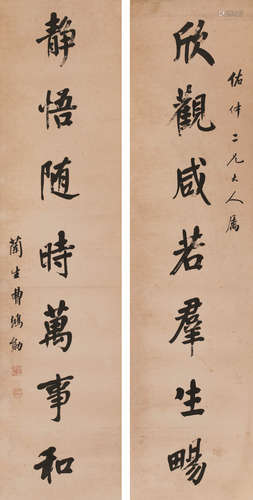 佑仲二兄大人屬
欣觀咸若羣生暢
靜悟随時萬事和
蘭生曹鴻勛